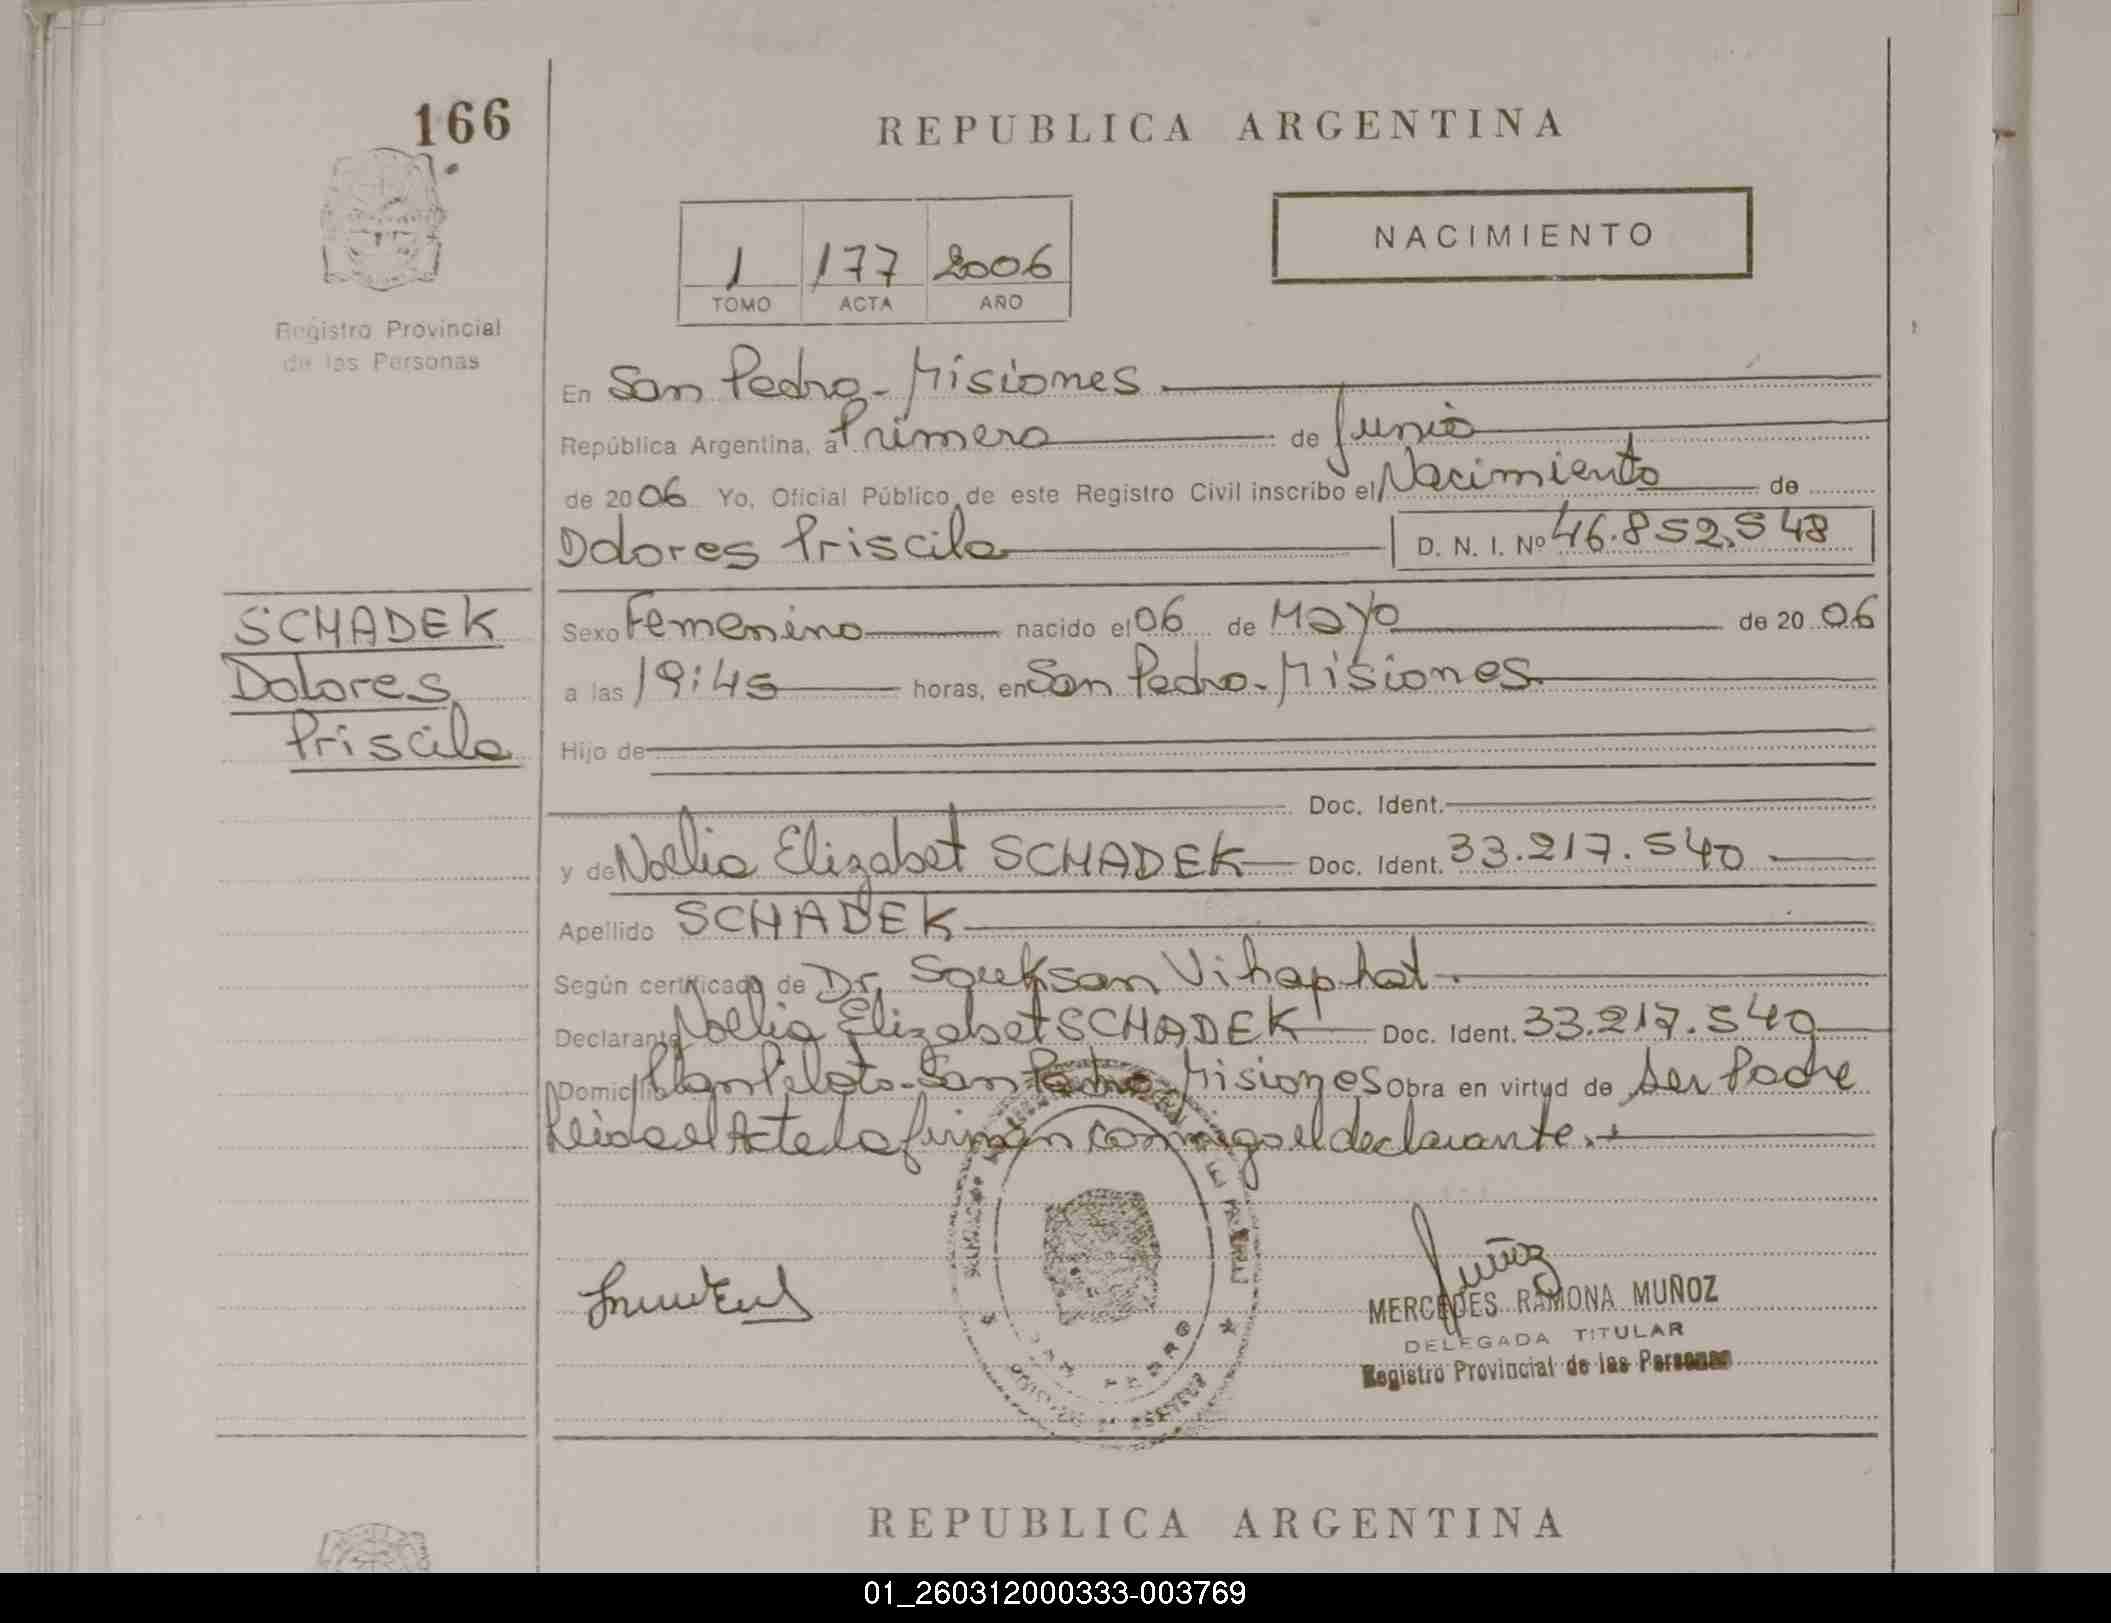 166
REPUBLICA ARGENTINA
NACIMIENTO
1 177 2006
TOMO ACTA AÑO
Registro Provincial
de las Personas
En San Pedro - Misiones
República Argentina, a Primero de Junio
de 2006 Yo, Oficial Público de este Registro Civil inscribo el Nacimiento de
Dolores Priscila D. N. I. Nº 46.852.548
SCHADEK
Dolores
Priscila
Sexo Femenino nacido el 06 de Mayo de 2006
a las 19:45 horas, en San Pedro - Misiones
Hijo de
Doc. Ident.
y de Noelia Elizabet SCHADEK Doc. Ident. 33.217.540
Apellido SCHADEK
Según certificado de Dr. Souksan Vihaphat.
Declarante Noelia Elizabet SCHADEK Doc. Ident. 33.217.540
Domicilio Plan Piloto - San Pedro Misiones Obra en virtud de ser Padre
Leida el Acta la firman conmigo el declarante.
MERCEDES RAMONA MUÑOZ
DELEGADA TITULAR
Registro Provincial de las Personas
REPUBLICA ARGENTINA
01_260312000333-003769